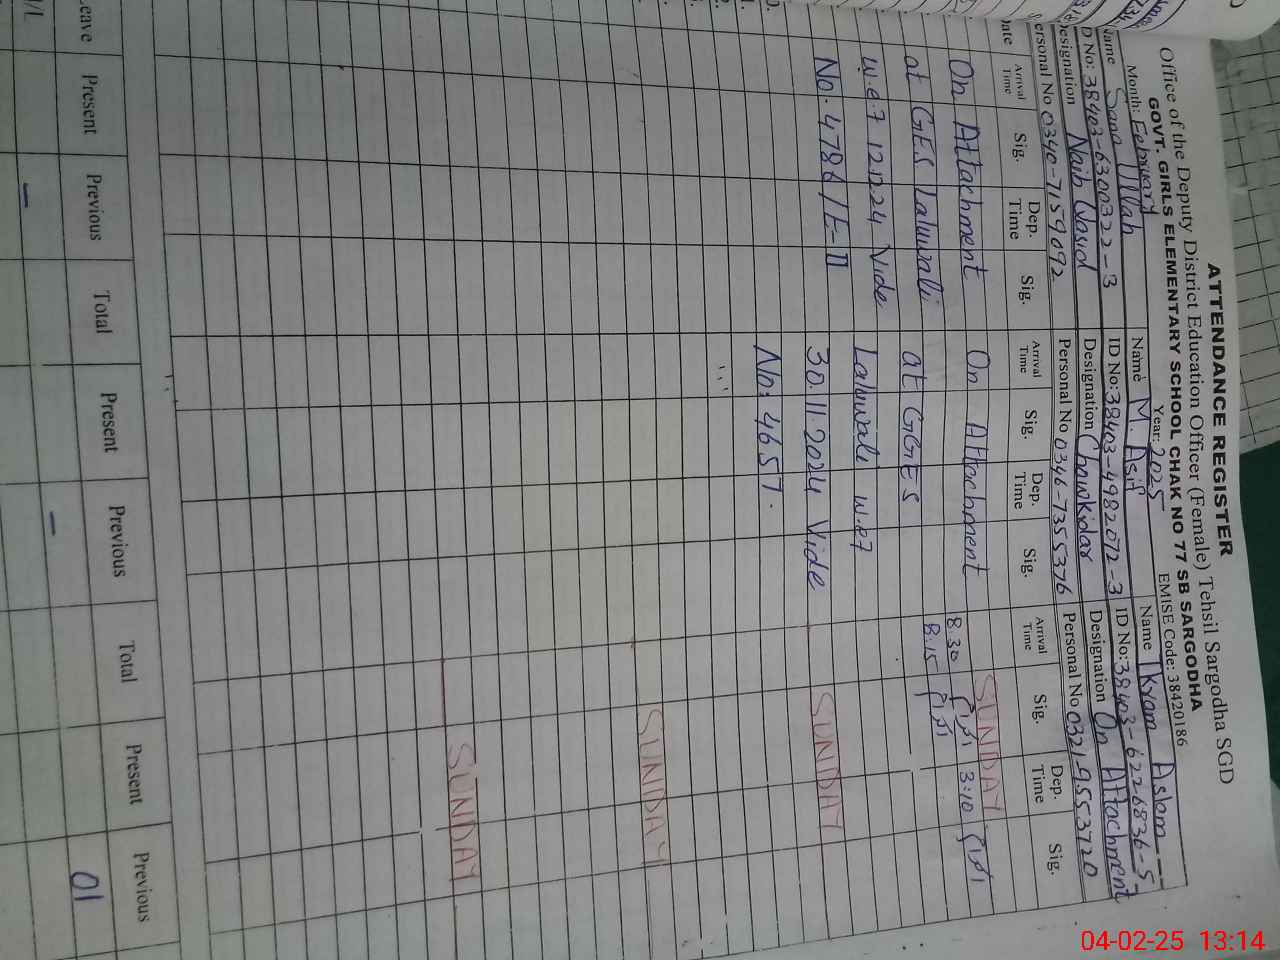 ATTENDANCE REGISTER
Office of the Deputy District Education Officer (Female) Tehsil Sargodha SGD
GOVT. GIRLS ELEMENTARY SCHOOL CHAK NO 77 SB SARGODHA
Month: February Year: 2025 EMISE Code: 38420186
Name Sana Ullah
ID No: 38403-6300322-3
Designation Naib Qasid
Personal No 0340-7159092
Name M. Asif
ID No: 38403-4982072-3
Designation Chowkidar
Personal No 0346-7355376
Name Ikram Aslam
ID No: 38403-6226836-5
Designation On Attachment
Personal No 0321-9553720
Date Arrival Time Sig. Dep. Time Sig. Arrival Time Sig. Dep. Time Sig. Arrival Time Sig. Dep. Time Sig.
On Attachment
at GES Laluwali
w.e.f 12.12.24 Vide
No. 4786/E-II
On Attachment
at GGES
Laluwali w.e.f
30.11.2024 Vide
No: 4657.
SUNDAY
8:30 3:10
8:15
SUNDAY
SUNDAY
SUNDAY
Leave Present Previous Total Present Previous Total Present Previous
01
04-02-25 13:14